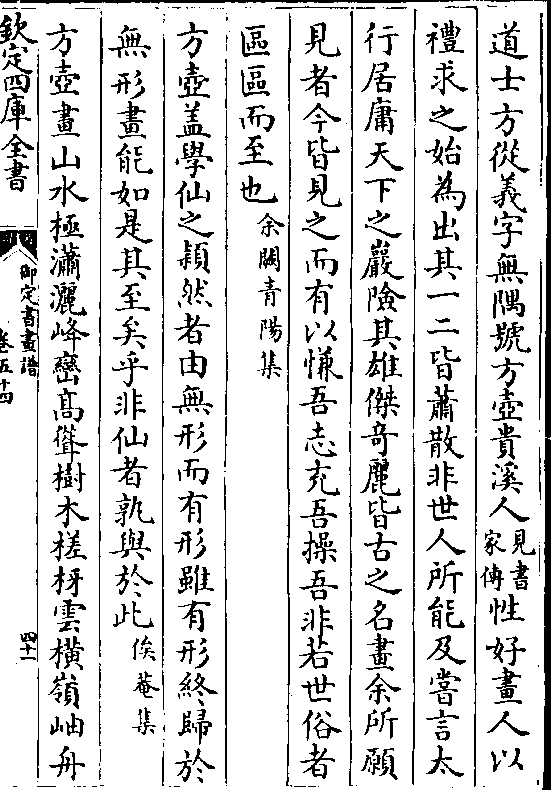 道士方從義字無隅號方壺貴溪人見書家傳性好畫人以
禮求之始為出其一二皆蕭散非世人所能及嘗言太
行居庸天下之巖險其雄傑奇麗皆古之名畫余所願
見者今皆見之而有以慊吾志充吾操吾非若世俗者
區區而至也余闕青陽集
方壺蓋學仙之穎然者由無形而有形雖有形終歸於
無形畫能如是其至矣乎非仙者孰與於此俟菴集
方壺畫山水極瀟灑峰巒高聳樹木槎枒雲橫嶺岫舟
欽定四庫全書
御定書畫譜
卷五十四
四十一